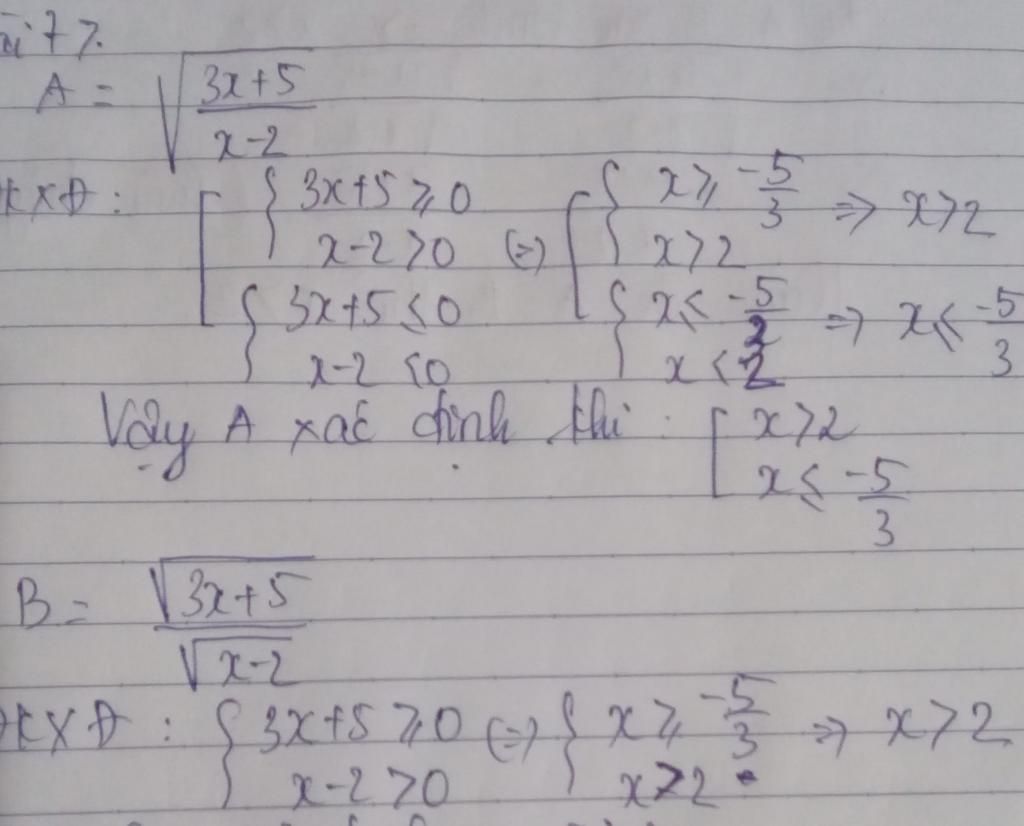 ài 77.
A = √((3x+5)/(x-2))
ĐKXĐ: [ { 3x+5 ≥ 0 ; x-2 > 0 (=) [ { x ≥ -5/3 ; x > 2 => x > 2
{ 3x+5 ≤ 0 ; x-2 < 0 { x ≤ -5/3 ; x < 2 => x ≤ -5/3
Vậy A xác định khi : [ x > 2
x ≤ -5/3
B = √(3x+5)/√(x-2)
ĐKXĐ : { 3x+5 ≥ 0 (=) { x ≥ -5/3 => x > 2
x-2 > 0 x > 2